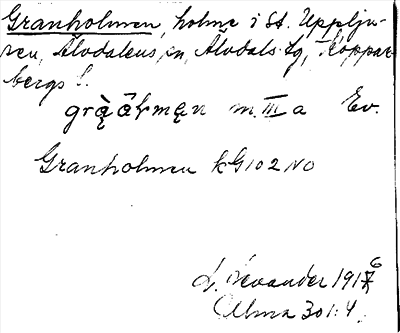 Granholmen, holme i St. Upplju-
ren, Älvdalens sn, Älvdals tg, Koppar-
bergs l.
m. III a Ev.
Granholmen kG102NO
L. Levander 1916
Ulma 301:4.